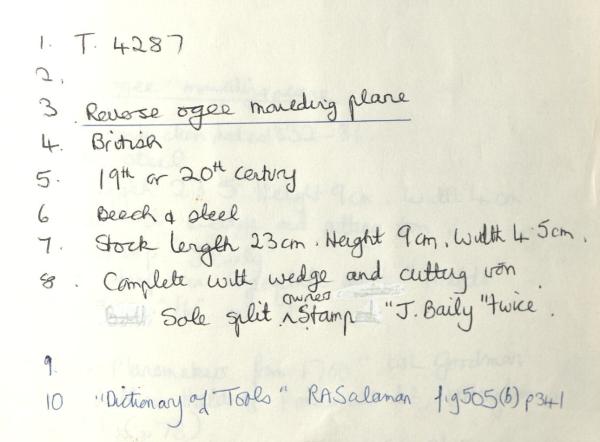 1. T. 4287
2.
3. Reverse ogee moulding plane
4. British
5. 19th or 20th century
6 Beech & steel
7. Stock length 23cm. Height 9cm, Width 4.5cm.
8. Complete with wedge and cutting iron
Sole split. owner Stamp "J. Baily" twice.
9.
10 "Dictionary of Tools" RASalaman fig505(b) p341